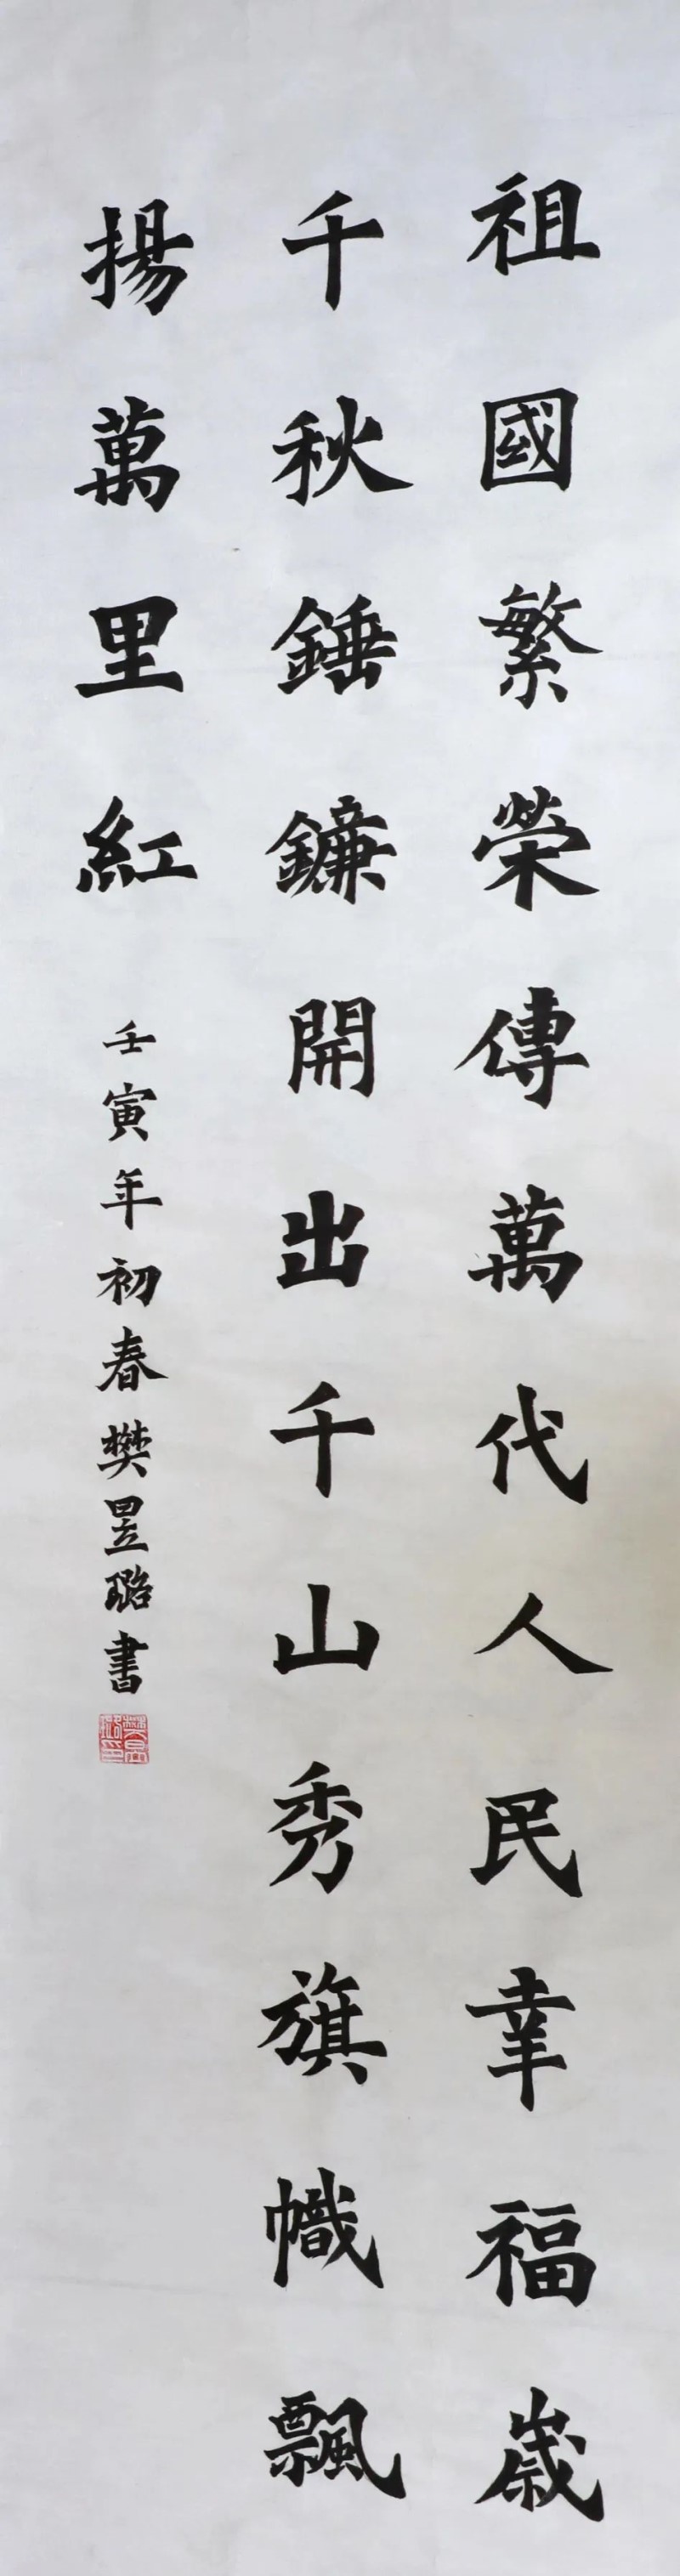 祖國繁榮傳萬代人民幸福歲
千秋錘鐮開出千山秀旗幟飄
揚萬里紅
壬寅年初春樊昱璐書